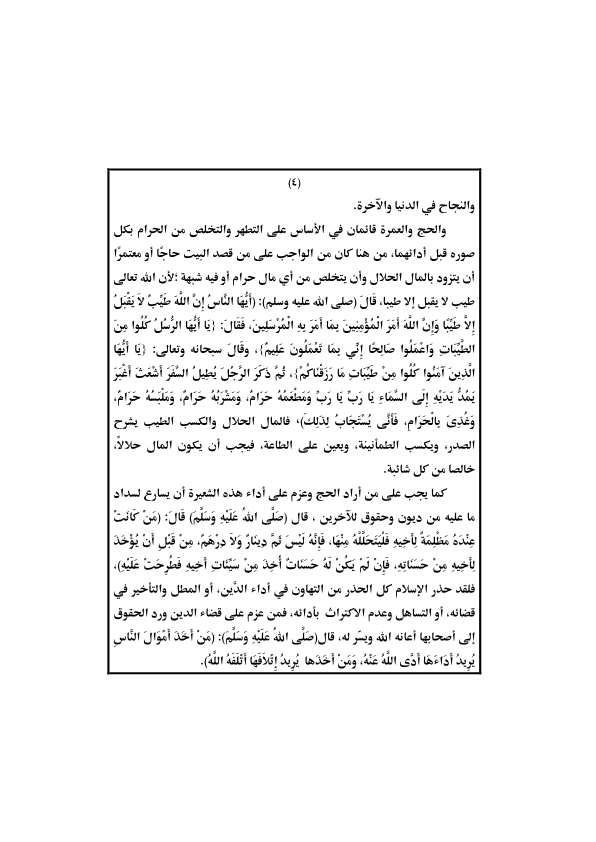 (٤)
والنجاح في الدنيا والآخرة.
والحج والعمرة قائمان في الأساس على التطهر والتخلص من الحرام بكل
صوره قبل أدائهما، من هنا كان من الواجب على من قصد البيت حاجًا أو معتمرًا
أن يتزود بالمال الحلال وأن يتخلص من أي مال حرام أو فيه شبهة ؛لأن الله تعالى
طيب لا يقبل إلا طيبا، قَالَ (صلى الله عليه وسلم): (أَيُّهَا النَّاسُ إِنَّ اللَّهَ طَيِّبٌ لاَ يَقْبَلُ
إِلاَّ طَيِّبًا وَإِنَّ اللَّهَ أَمَرَ الْمُؤْمِنِينَ بِمَا أَمَرَ بِهِ الْمُرْسَلِينَ، فَقَالَ: {يَا أَيُّهَا الرُّسُلُ كُلُوا مِنَ
الطَّيِّبَاتِ وَاعْمَلُوا صَالِحًا إِنِّي بِمَا تَعْمَلُونَ عَلِيمٌ}، وقَالَ سبحانه وتعالى: {يَا أَيُّهَا
الَّذِينَ آمَنُوا كُلُوا مِنْ طَيِّبَاتِ مَا رَزَقْنَاكُمْ}، ثُمَّ ذَكَرَ الرَّجُلَ يُطِيلُ السَّفَرَ أَشْعَثَ أَغْبَرَ
يَمُدُّ يَدَيْهِ إِلَى السَّمَاءِ يَا رَبِّ يَا رَبِّ وَمَطْعَمُهُ حَرَامٌ، وَمَشْرَبُهُ حَرَامٌ، وَمَلْبَسُهُ حَرَامٌ،
وَغُذِىَ بِالْحَرَامِ، فَأَنَّى يُسْتَجَابُ لِذَلِكَ)، فالمال الحلال والكسب الطيب يشرح
الصدر، ويكسب الطمأنينة، ويعين على الطاعة، فيجب أن يكون المال حلالاً،
خالصا من كل شائبة.
كما يجب على من أراد الحج وعزم على أداء هذه الشعيرة أن يسارع لسداد
ما عليه من ديون وحقوق للآخرين ، قال (صَلَّى اللهُ عَلَيْهِ وَسَلَّمَ) قَالَ: (مَنْ كَانَتْ
عِنْدَهُ مَظْلِمَةٌ لِأَخِيهِ فَلْيَتَحَلَّلْهُ مِنْهَا، فَإِنَّهُ لَيْسَ ثَمَّ دِينَارٌ وَلاَ دِرْهَمٌ، مِنْ قَبْلِ أَنْ يُؤْخَذَ
لِأَخِيهِ مِنْ حَسَنَاتِهِ، فَإِنْ لَمْ يَكُنْ لَهُ حَسَنَاتٌ أُخِذَ مِنْ سَيِّئَاتِ أَخِيهِ فَطُرِحَتْ عَلَيْهِ)،
فلقد حذر الإسلام كل الحذر من التهاون في أداء الدَّين، أو المطل والتأخير في
قضائه، أو التساهل وعدم الاكتراث بأدائه، فمن عزم على قضاء الدين ورد الحقوق
إلى أصحابها أعانه الله ويسّر له، قال(صَلَّى اللهُ عَلَيْهِ وَسَلَّمَ): (مَنْ أَخَذَ أَمْوَالَ النَّاسِ
يُرِيدُ أَدَاءَهَا أَدَّى اللَّهُ عَنْهُ، وَمَنْ أَخَذَها يُرِيدُ إِتْلاَفَهَا أَتْلَفَهُ اللَّهُ).